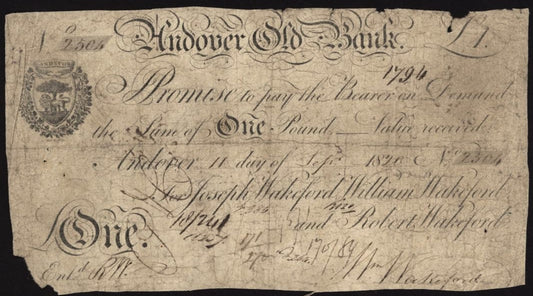 No 2304 Andover Old Bank. £1.
ANDOVER
1794
I Promise to pay the Bearer on Demand
the Sum of One Pound, Value received.
Andover 11 day of Sepr. 182 No 2304
For Joseph Wakeford, William Wakeford
and Robert Wakeford.
One.
170/89
Wm Wakeford
Entd. RW